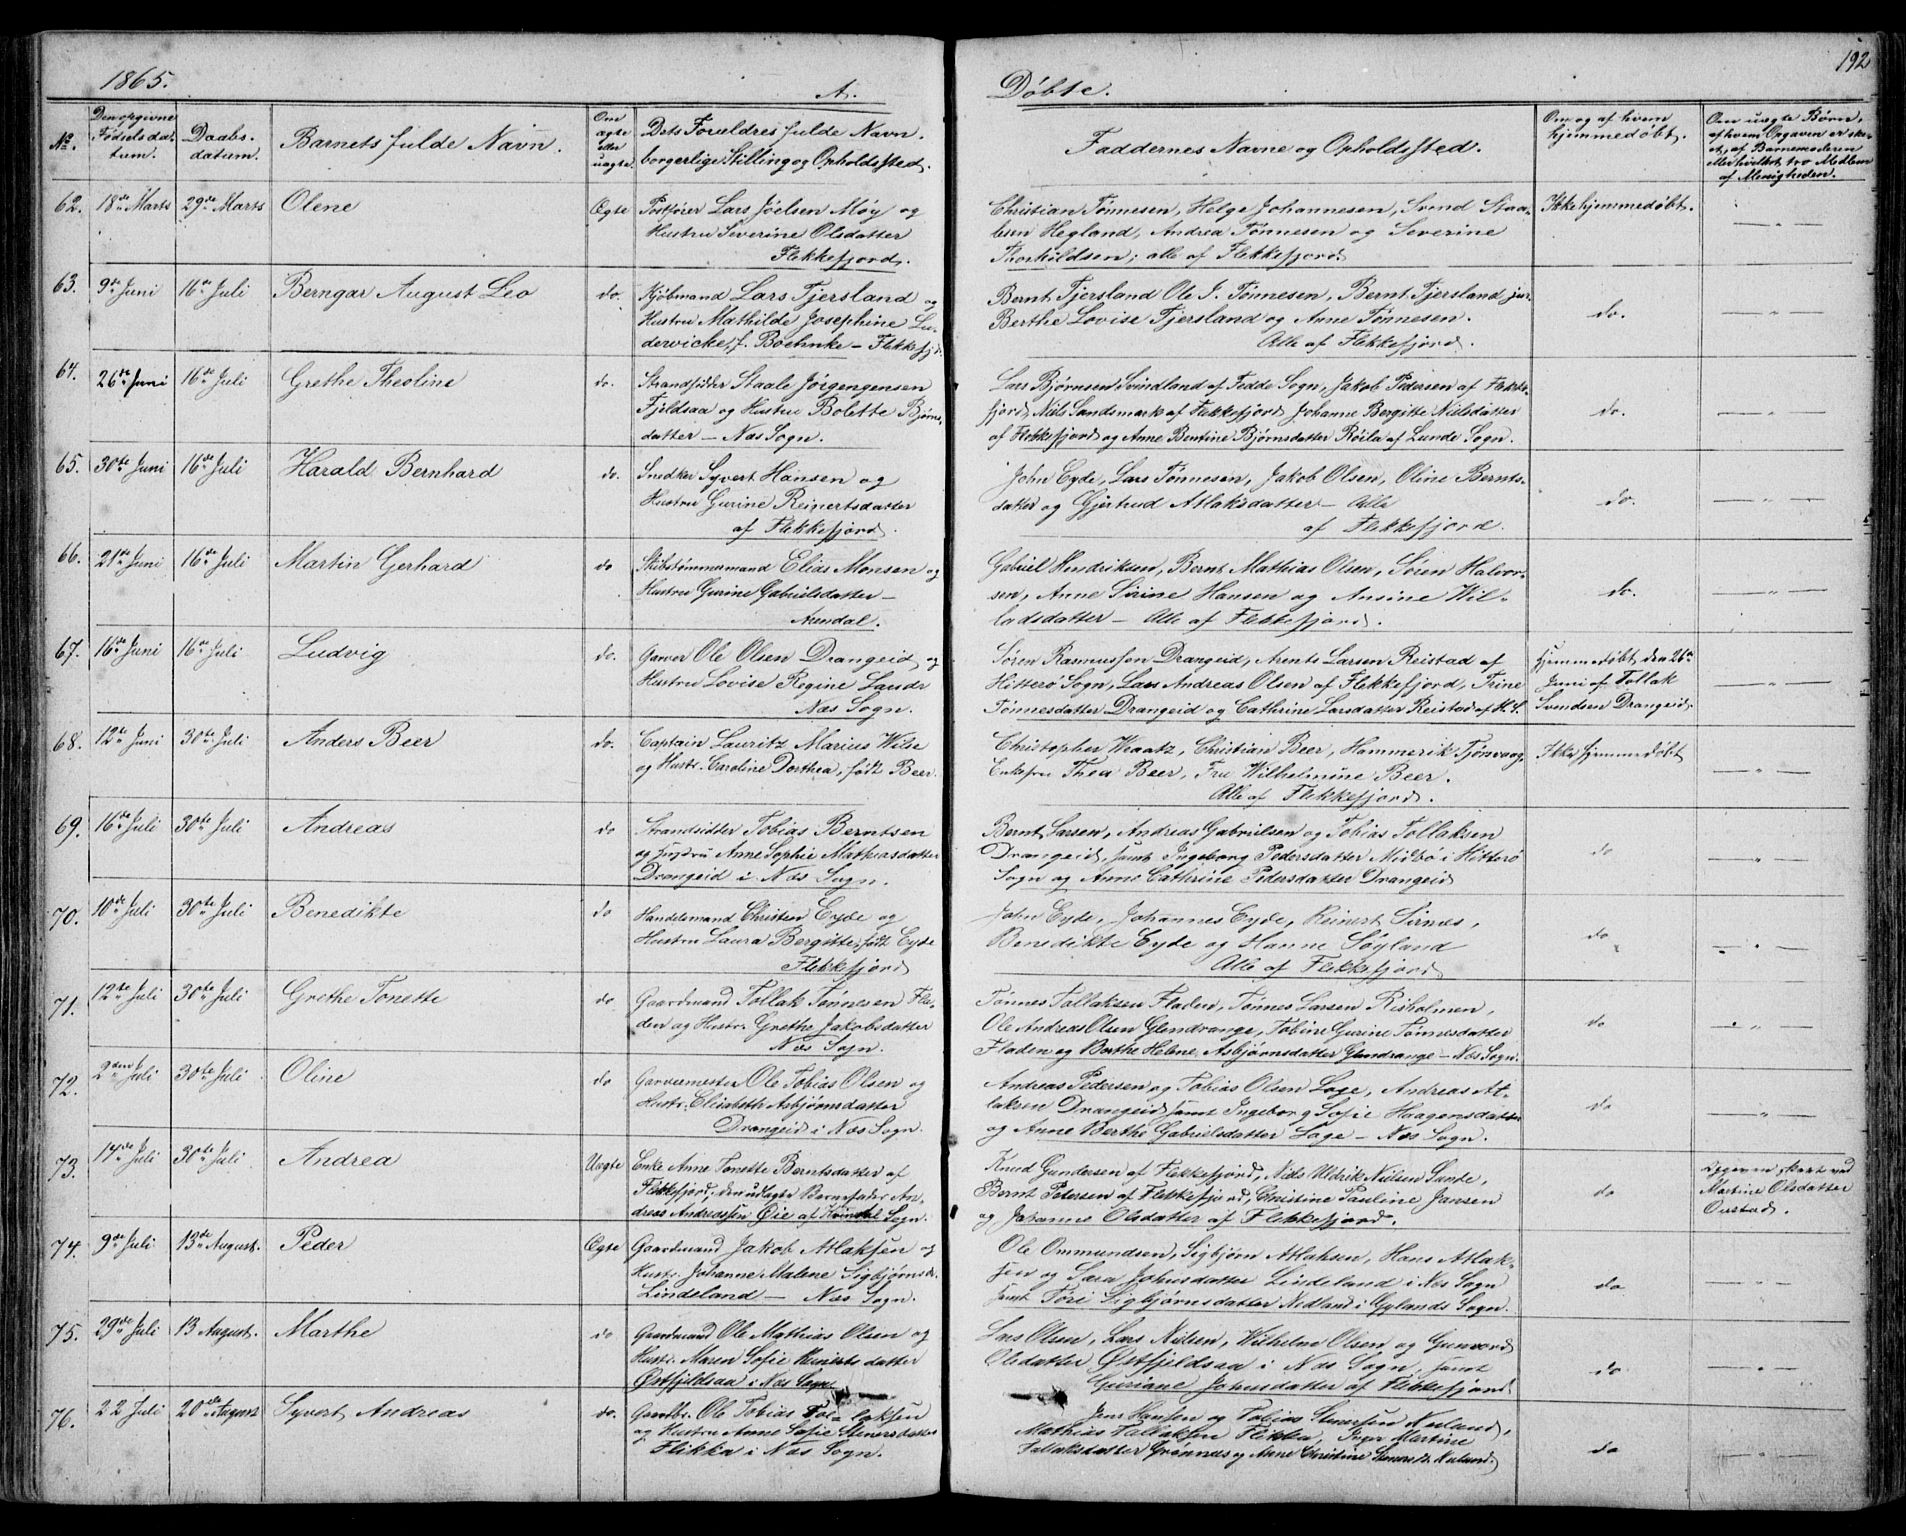 1865.
A.
Døbte.
192
No.
Den opgivne Fødselsda-tum.
Daabs-datum.
Barnets fulde Navn.
Om ægte eller uægte.
Dets Forældres fulde Navn, borgerlige Stilling og Opholdssted.
Faddernes Navne og Opholdssted.
Om og af hvem hjemmedøbt.
Om uægte Børn, af hvem Opgaven er ske-et, af Barnemoderen
af Menigheden.
62. 18de Marts 29de Marts Olene Ægte Postfører Lars Joelsen Møy og
Hustru Severine Olsdatter
Flekkefjord.
Christian Tønnesen, Helge Johannesen, Svend Staa-
lesen Hegland, Andrea Tønnesen og Severine
Thorkildsen; alle af Flekkefjord
Ikke hjemmedøbt.
— " —
63. 9de Juni 16de Juli Berngar August Leo do. Kjøbmand Lars Tjersland og
Hustru Mathilde Josephine Lu-
dervicke, f. Boehnke – Flekkefjd.
Bernt Tjersland Ole J. Tønnesen, Bernt Tjersland jur.
Berthe Lovise Tjersland og Anne Tønnesen.
Alle af Flekkefjord.
do.
— " —
64. 26de Juni 16de Juli Grethe Theoline do. Strandsidder Staale Jørgengensen
Fjeldsaa og Hustru Bolette Bjørns-
datter – Næs Sogn.
Lars Bjørnsen Svindland af Fedde Sogn, Jakob Pedersen af Flekke-
fjord, Niels Sandsmark af Flekkefjord Johanne Bergitte Nielsdatter
af Flekkefjord og Anne Bentine Bjørnsdatter Røila af Lunde Sogn.
do.
— " —
65. 30te Juni 16de Juli Harald Bernhard do. Snedker Syvert Hansen og
Hustru Gurine Reinertsdatter
af Flekkefjord.
John Eyde, Lars Tønnesen, Jakob Olsen, Oline Bernts-
datter og Gjertrud Atlaksdatter – Alle
af Flekkefjord.
do.
— " —
66. 21de Juni 16de Juli Martin Gerhard do Skibstømmermand Elias Monsen og
Hustru Gurine Gabrielsdatter –
Arendal.
Gabriel Hendriksen, Bernt Mathias Olsen, Søren Halvor-
sen, Anne Sirine Hansen og Ansine Wil-
ladsdatter – Alle af Flekkefjord.
do.
— " —
67. 16de Juni 16de Juli Ludvig do. Garver Ole Olsen Drangeid og
Hustru Lovise Regine Lande
Næs Sogn.
Søren Rasmussen Drangeid, Arents Larsen Reistad af
Hitterø Sogn, Lars Andreas Olsen af Flekkefjord, Trine
Tønnesdatter Drangeid og Cathrine Larsdatter Reistad af H. S.
Hjemmedøbt den 26de
Juni af Tollak
Svendsen Drangeid.
— " —
68. 12te Juni 30te Juli Anders Beer do. Captain Lauritz Marius Wilse
og Hustr. Caroline Dorthea, født Beer.
Christopher Waatz, Christian Beer, Hammerik Tjønvaag,
Enkefru Thea Beer, Fru Wilhelmine Beer.
Alle af Flekkefjord.
Ikke hjemmedøbt
— " —
69. 16de Juli 30te Juli Andreas do Strandsidder Tobias Berntsen
og Hustru Anne Sophie Mathiasdatter
Drangeid i Næs Sogn.
Bernt Larsen, Andreas Gabrielsen og Tobias Tollaksen
Drangeid, samt Ingeborg Pedersdatter Midbø i Hitterø
Sogn og Anne Cathrine Pedersdatter Drangeid
do
— " —
70. 10de Juli 30te Juli Benedikte do Handelsmand Christen Eyde og
Hustru Laura Bergitte, født Eyde
Flekkefjord
John Eyde, Johannes Eyde, Reinert Sirnes,
Benedikte Eyde og Hanne Søyland
Alle af Flekkefjord
do
— " —
71. 12te Juli 30te Juli Grethe Tonette do Gaardmand Tollak Tønnesen Fla-
den og Hustr. Grethe Jakobsdatter
Næs Sogn.
Tønnes Tollaksen Fladen, Tønnes Larsen Risholmen,
Ole Andreas Olsen Glendrange, Tobine Gurine Tønnesdatter
Fladen og Berthe Helene Asbjørnsdatter Glendrange – Næs Sogn.
do
— " —
72. 2den Juli 30te Juli Oline do Garvermester Ole Tobias Olsen og
Hustr. Elisabeth Asbjørnsdatter
Drangeid i Næs Sogn.
Andreas Pedersen og Tobias Olsen Loge, Andreas At-
laksen Drangeid samt Ingeborg Sofie Haagensdatter
og Anne Berthe Gabrielsdatter Loge – Næs Sogn.
do
— " —
73. 14de Juli 30te Juli Andrea Uægte Enke Anne Tonette Berntsdatter af
Flekkefjord, den udlagte Barnefader An-
dreas Andreassen Øie af Kvindal Sogn.
Knud Gundersen af Flekkefjord, Niels Uldrik Nilsen Lande,
Bernt Petersen af Flekkefjord, Christine Pauline Jansen
og Johanne Olsdatter af Flekkefjord.
do
Opgaven skeet ved
Martine Olsdatter
74. 9de Juli 13de August. Peder Ægte Gaardmand Jakob Atlaksen og
Hustr. Johanne Malene Sigbjørnsd.
Lindeland – Næs Sogn.
Ole Ommundsen, Sigbjørn Atlaksen, Hans Atlak-
sen og Sara Johnsdatter Lindeland i Næs Sogn
samt Tøri Sigbjørnsdatter Nedland i Gylands Sogn.
do
— " —
75. 29de Juli 13 August. Marthe do Gaardmand Ole Mathias Olsen og
Hustr. Maren Sofie Reinertsdatter
Østfjeldsaa i Næs Sogn
Lars Olsen, Lars Nilsen, Wilhelm Olsen og Gunvord
Olsdatter Østfjeldsaa i Næs Sogn, samt
Guriane Johnsdatter af Flekkefjord
do
— " —
76. 22 Juli 20de August Syvert Andreas do. Gaardbr. Ole Tobias Tol-laksen
og Hustru Anne Sofie Stenersdatter
Flikka i Næs Sogn.
Jens Hansen og Tobias Stenersen Neland,
Mathias Tallaksen Flikka, Inger Martine
Tallaksdatter Grønnes og Anne Christine Stenersd. Neland.
do
— " —